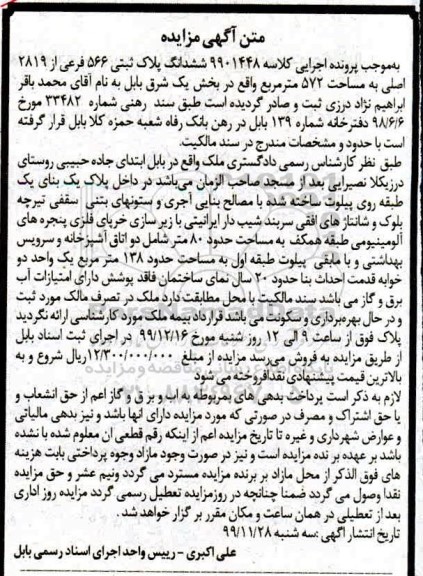 متن آگهی مزایده
به‌موجب پرونده اجرایی کلاسه ۹۹۰۱۴۴۸ ششدانگ پلاک ثبتی ۵۶۶ فرعی از ۲۸۱۹
اصلی به مساحت ۵۷۲ مترمربع واقع در بخش یک شرق بابل به نام آقای محمد باقر
ابراهیم نژاد درزی ثبت و صادر گردیده است طبق سند رهنی شماره ۳۳۴۸۲ مورخ
۹۸/۶/۶ دفترخانه شماره ۱۳۹ بابل در رهن بانک رفاه شعبه حمزه کلا بابل قرار گرفته
است با حدود و مشخصات مندرج در سند مالکیت.
طبق نظر کارشناس رسمی دادگستری ملک واقع در بابل ابتدای جاده حبیبی روستای
درزیکلا نصیرایی بعد از مسجد صاحب الزمان می‌باشد در داخل پلاک یک بنای یک
طبقه روی پیلوت ساخته شده با مصالح بنایی آجری و ستونهای بتنی سقفی تیرچه
بلوک و شانتاژ های افقی سربند شیب دار ایرانیتی با زیر سازی خرپای فلزی پنجره های
آلومینیومی طبقه همکف به مساحت حدود ۸۰ متر شامل دو اتاق آشپزخانه و سرویس
بهداشتی و با مابقی پیلوت طبقه اول به مساحت حدود ۱۳۸ متر مربع یک واحد دو
خوابه قدمت احداث بنا حدود ۲۰ سال نمای ساختمان فاقد پوشش دارای امتیازات آب
برق و گاز می باشد سند مالکیت با محل مطابقت دارد ملک در تصرف مالک مورد ثبت
و در حال بهره‌برداری و سکونت می باشد قرارداد بیمه ملک مورد کارشناسی ارائه نگردید
پلاک فوق از ساعت ۹ الی ۱۲ روز شنبه مورخ ۹۹/۱۲/۱۶ در اجرای ثبت اسناد بابل
از طریق مزایده به فروش می‌رسد مزایده از مبلغ ۱۲/۳۰۰/۰۰۰/۰۰۰ریال شروع و به
بالاترین قیمت پیشنهادی نقدافروخته می شود
لازم به ذکر است پرداخت بدهی های بمربوطه به اب و بر ق و گاز اعم از حق انشعاب و
یا حق اشتراک و مصرف در صورتی که مورد مزایده دارای انها باشد و نیز بدهی مالیاتی
و عوارض شهرداری و غیره تا تاریخ مزایده اعم از اینکه رقم قطعی ان معلوم شده یا نشده
باشد بر عهده بر نده مزایده است و نیز در صورت وجود مازاد وجوه پرداختی بابت هزینه
های فوق الذکر از محل مازاد بر برنده مزایده مسترد می گردد ونیم عشر و حق مزایده
نقدا وصول می گردد ضمنا چنانچه در روزمزایده تعطیل رسمی گردد مزایده روز اداری
بعد از تعطیلی در همان ساعت و مکان مقرر بر گزار خواهد شد.
تاریخ انتشار اگهی :سه شنبه ۹۹/۱۱/۲۸
علی اکبری - رییس واحد اجرای اسناد رسمی بابل